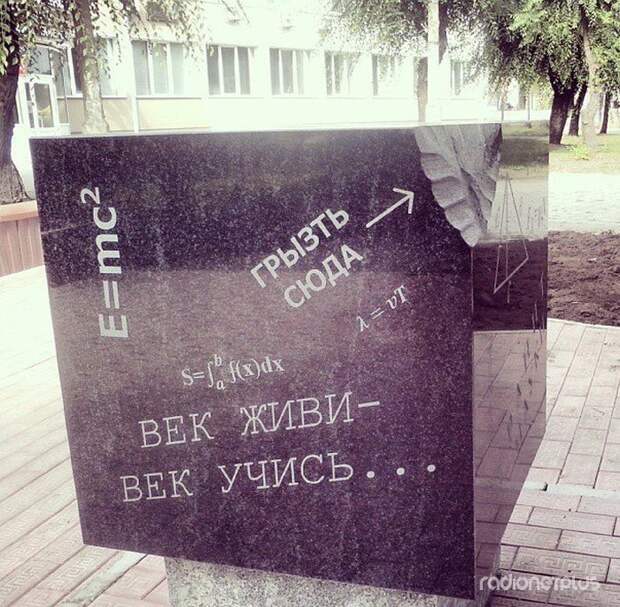 E=mc²
ГРЫЗТЬ
СЮДА
λ = vT
S=∫ₐᵇ f(x)dx
ВЕК ЖИВИ-
ВЕК УЧИСЬ...
radionetplus